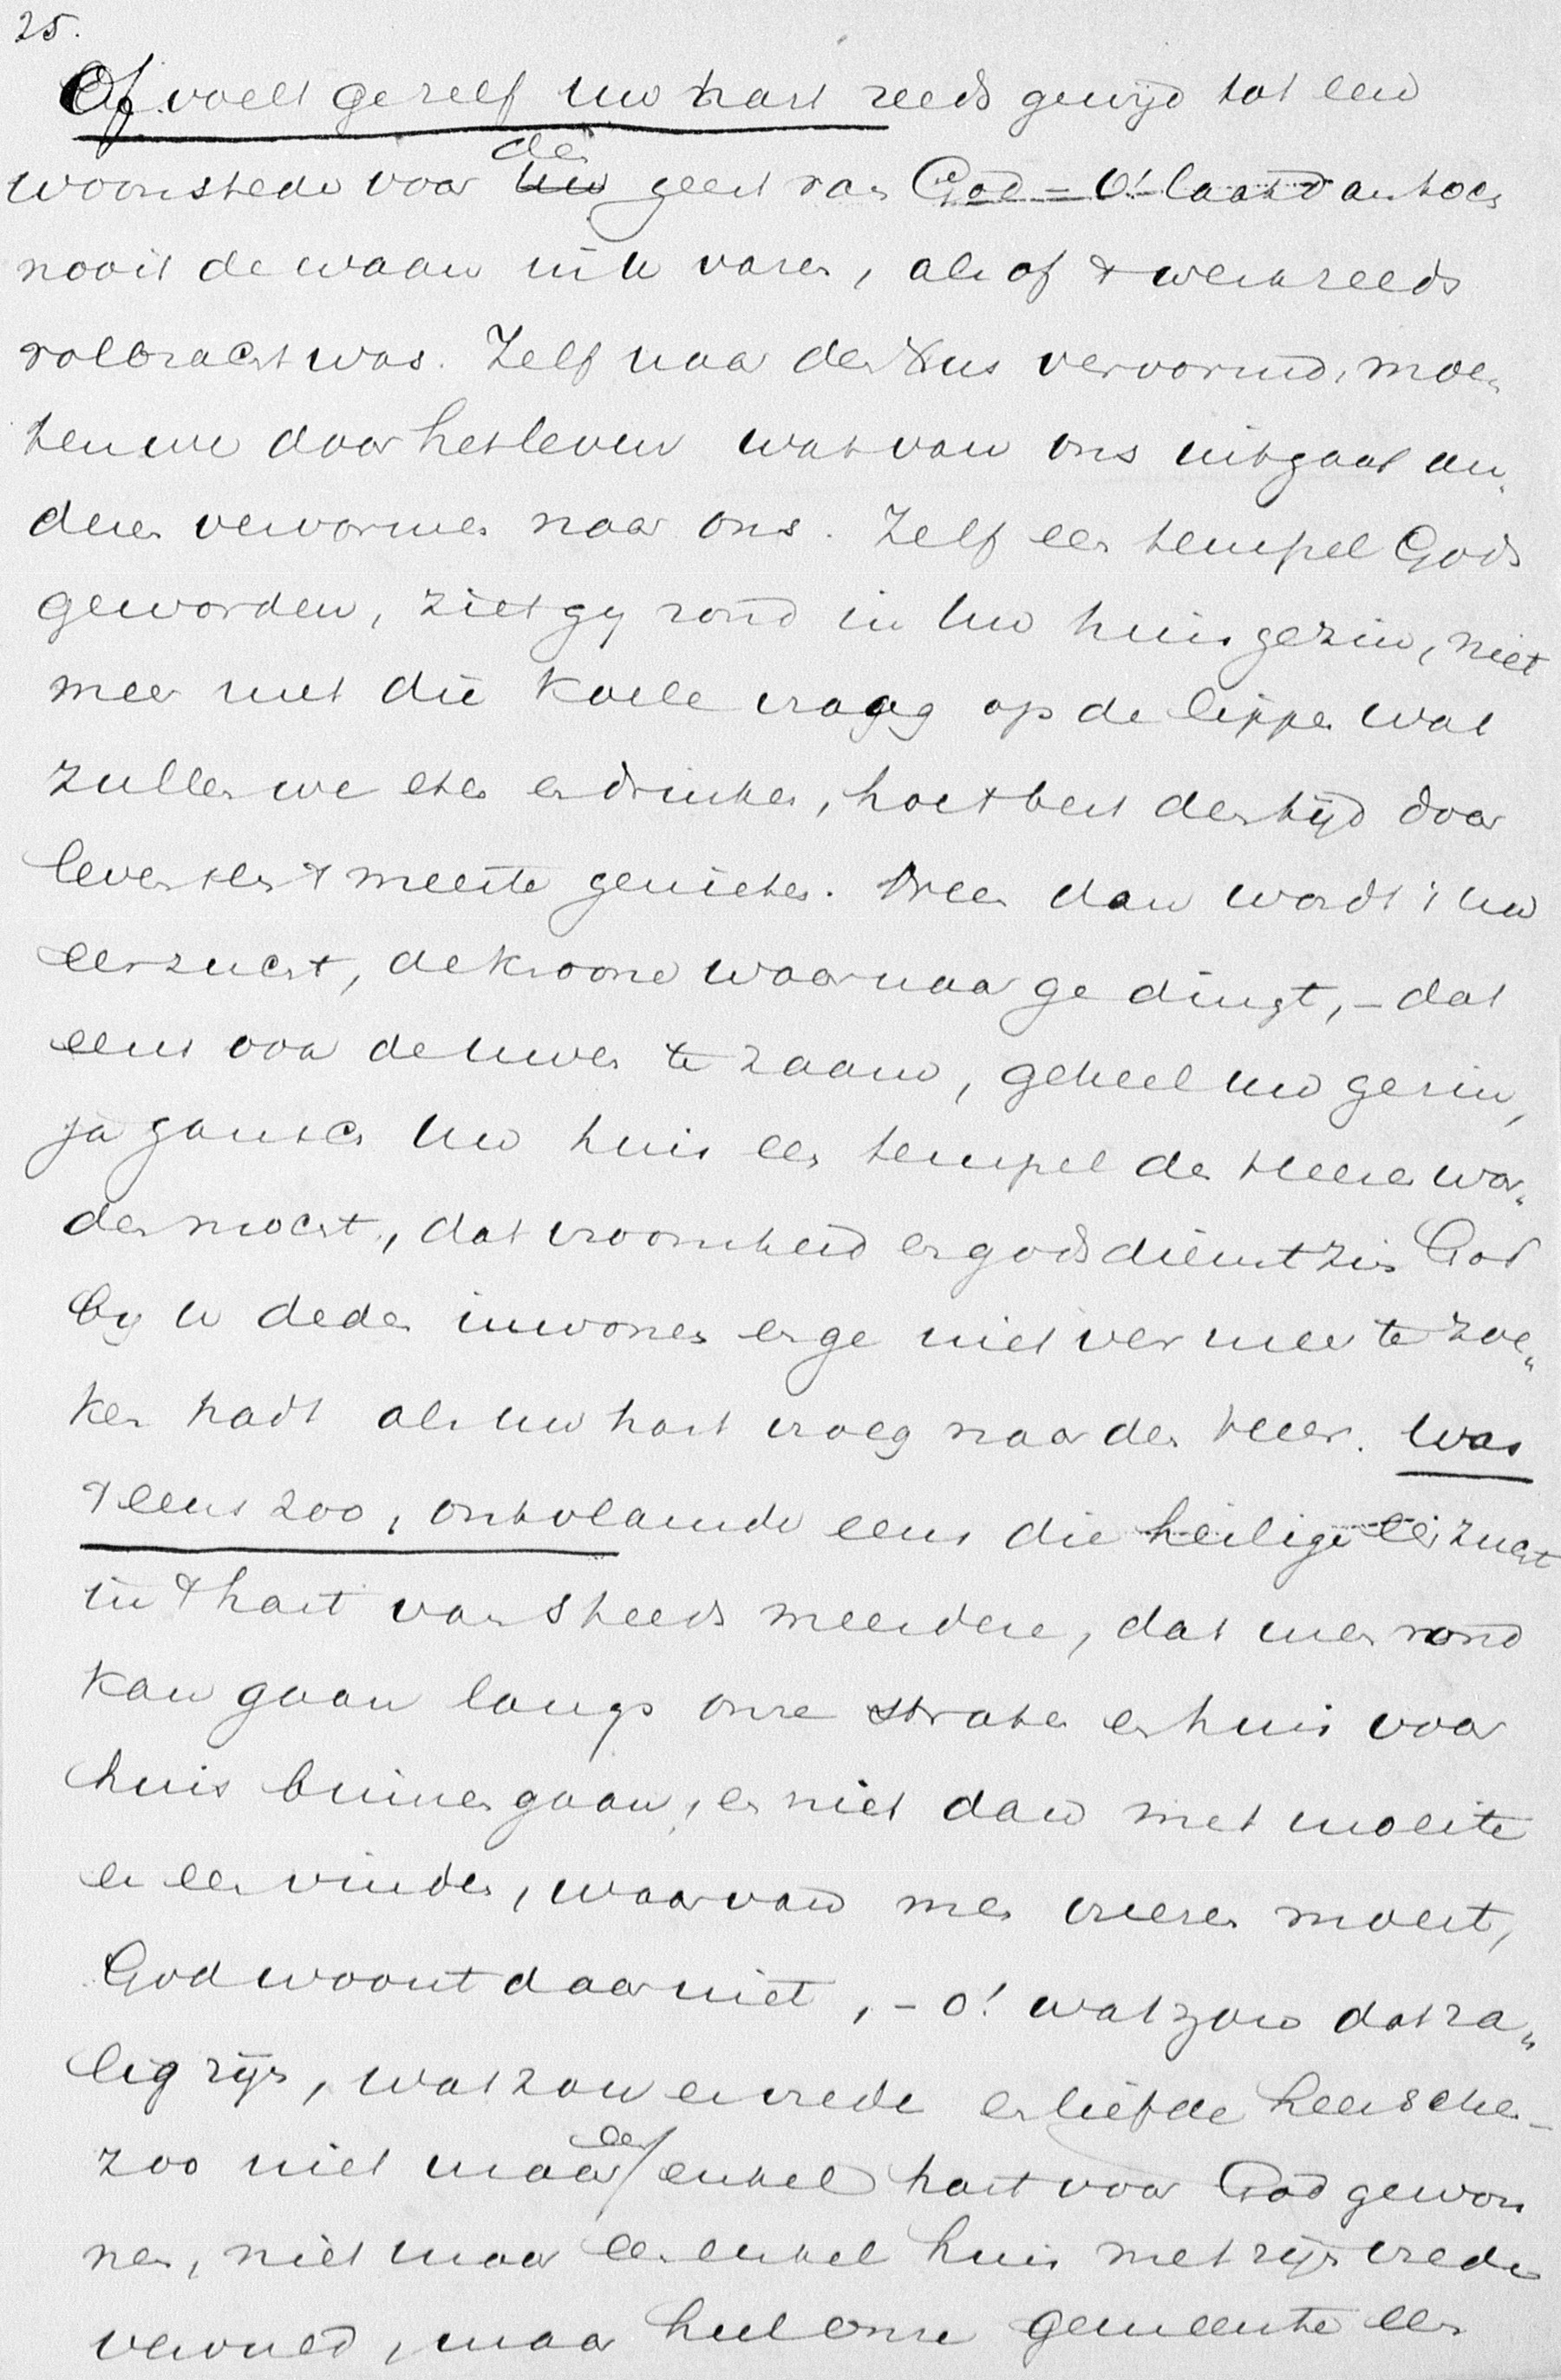 25.
Of voelt ge zelf uw hart reeds gewijd tot een
den
woonstede voor uw geest van God = O! laat dan toch
nooit de waan in U varen, als of 't werk reeds
volbracht was. Zelf naar den Xtus vervormd, moe-
ten we door het leven wat van ons uitgaat an„
deren vervormen naar ons. Zelf een tempel Gods
geworden, ziet gij rond in Uw huisgezin, niet
meer met die koele vraag op de lippen wat
zullen we eten en drinken, hoe 't best den tijd door
leven en 't meeste genieten. Neen dan wordt 't uw
eerzucht, de kroone waarnaar ge dingt, – dat
eens ook de uwen te zaam, geheel uw gezin,
ja gansch Uw huis een tempel des Heeren wor„
den mocht, dat vroomheid en godsdienstzin God
bij U deden inwonen en ge niet ver meer te zoe„
ken hadt als uw hart vroeg naar den Heer. Was
't eens zoo, ontvlamde eens die heilige eerzucht
in 't hart van steeds meerdere, dat men rond
kan gaan langs onze straten en huis voor
huis binnen gaan, en niet dan met moeite
er een vinden, waarvan men vreezen moest,
God woont daar niet, – o! wat zou dat za„
lig zijn, wat zou er vrede en liefde heerschen –
een
zoo niet maar / enkel hart voor God gewon
nen, niet maar een enkel huis met zijn vrede
vervuld, maar heel onze gemeente een